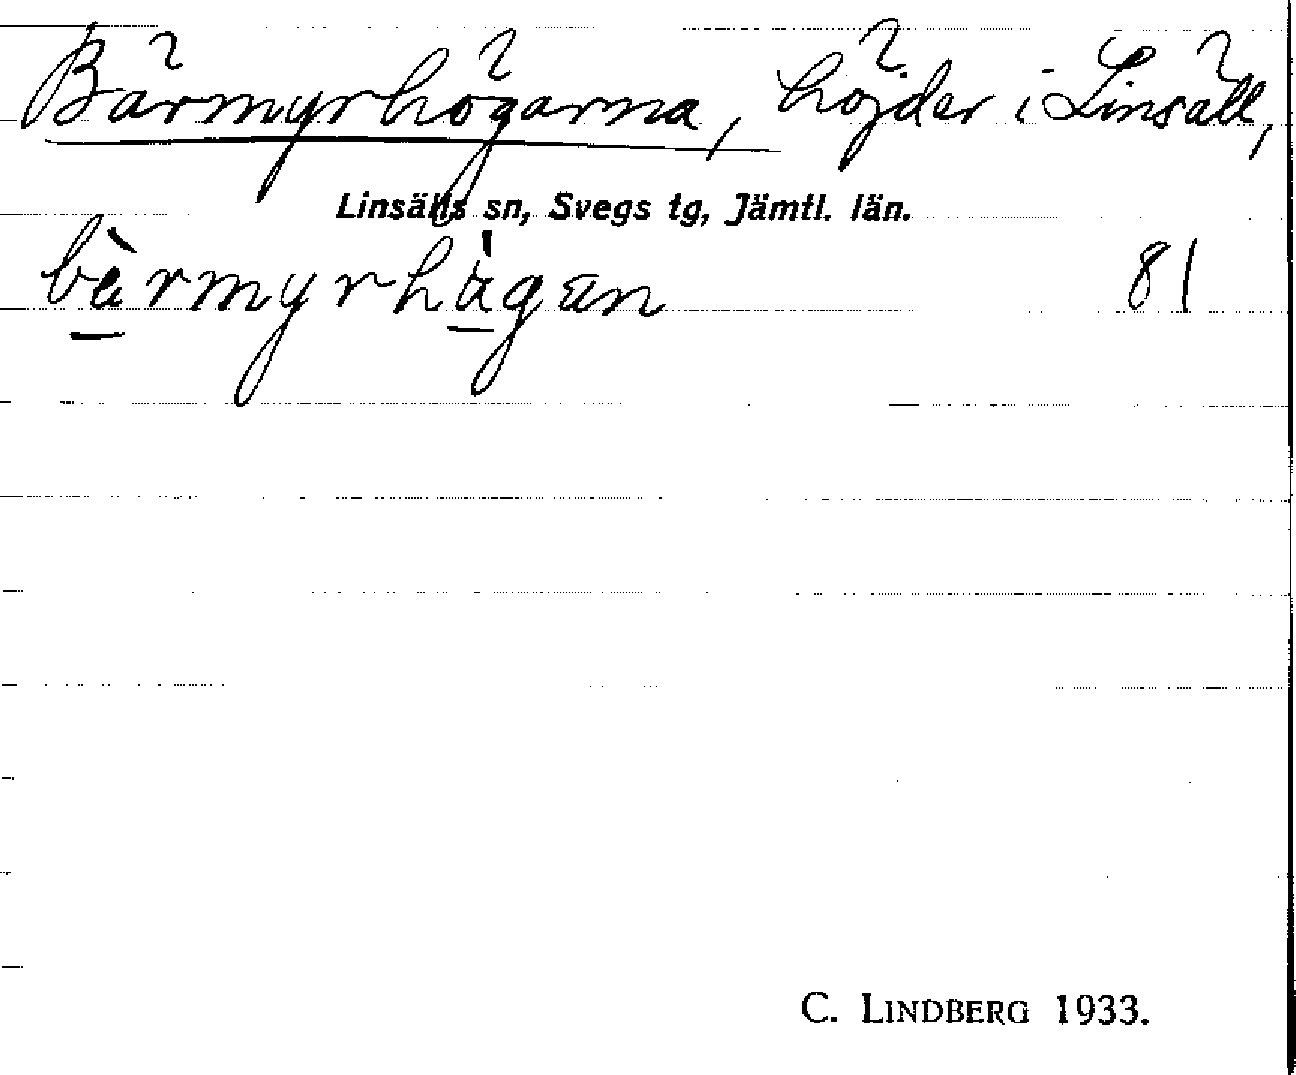 Bärmyrhögarna, höjder i Linsäll,
Linsälls sn, Svegs tg, Jämtl. län.
bèrmyrhàgan 81
C. LINDBERG 1933.